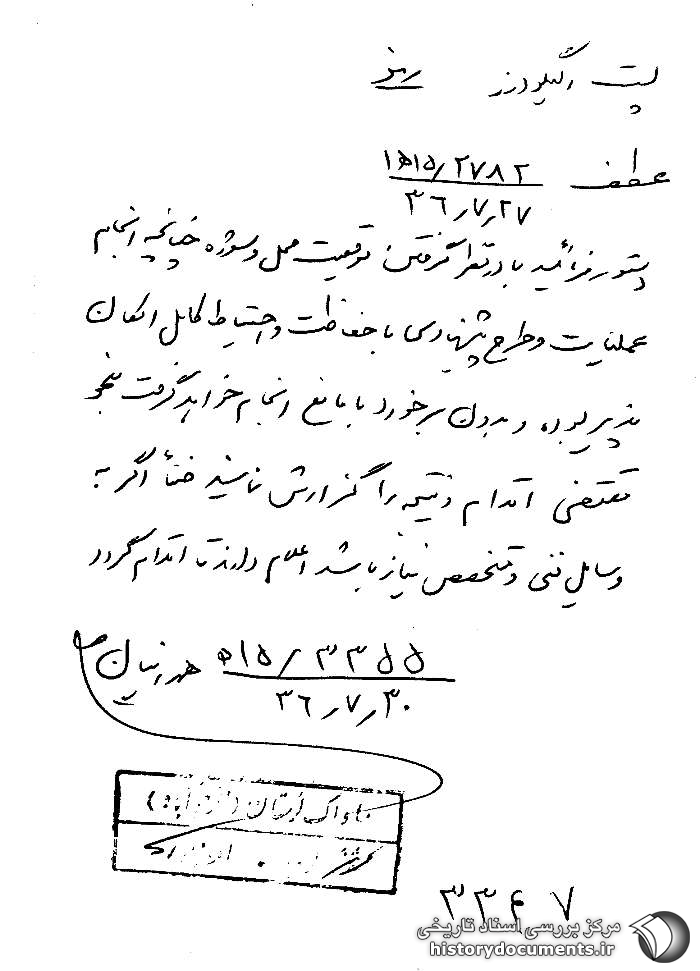 پست الیگودرز رمز
عطف ۱۵ه۱/۲۷۸۲
۳۶/۷/۲۷
دستور فرمائید با در نظر گرفتن موقعیت محل و سوژه چنانچه انجام
عملیات و طرح پیشنهادی با حفاظت و احتیاط کامل امکان
پذیر بوده و بدون برخورد با مانع انجام خواهد گرفت بنحو
مقتضی اقدام و نتیجه را گزارش نمایند ضمناً اگر به
وسایل فنی و متخصص نیاز باشد اعلام دارند تا اقدام گردد
۱۵ه/۳۳۵۵
۳۶/۷/۳۰
ساواک لرستان (خرم آباد)
۳۳۴۷
مرکز بررسی اسناد تاریخی
historydocuments.ir